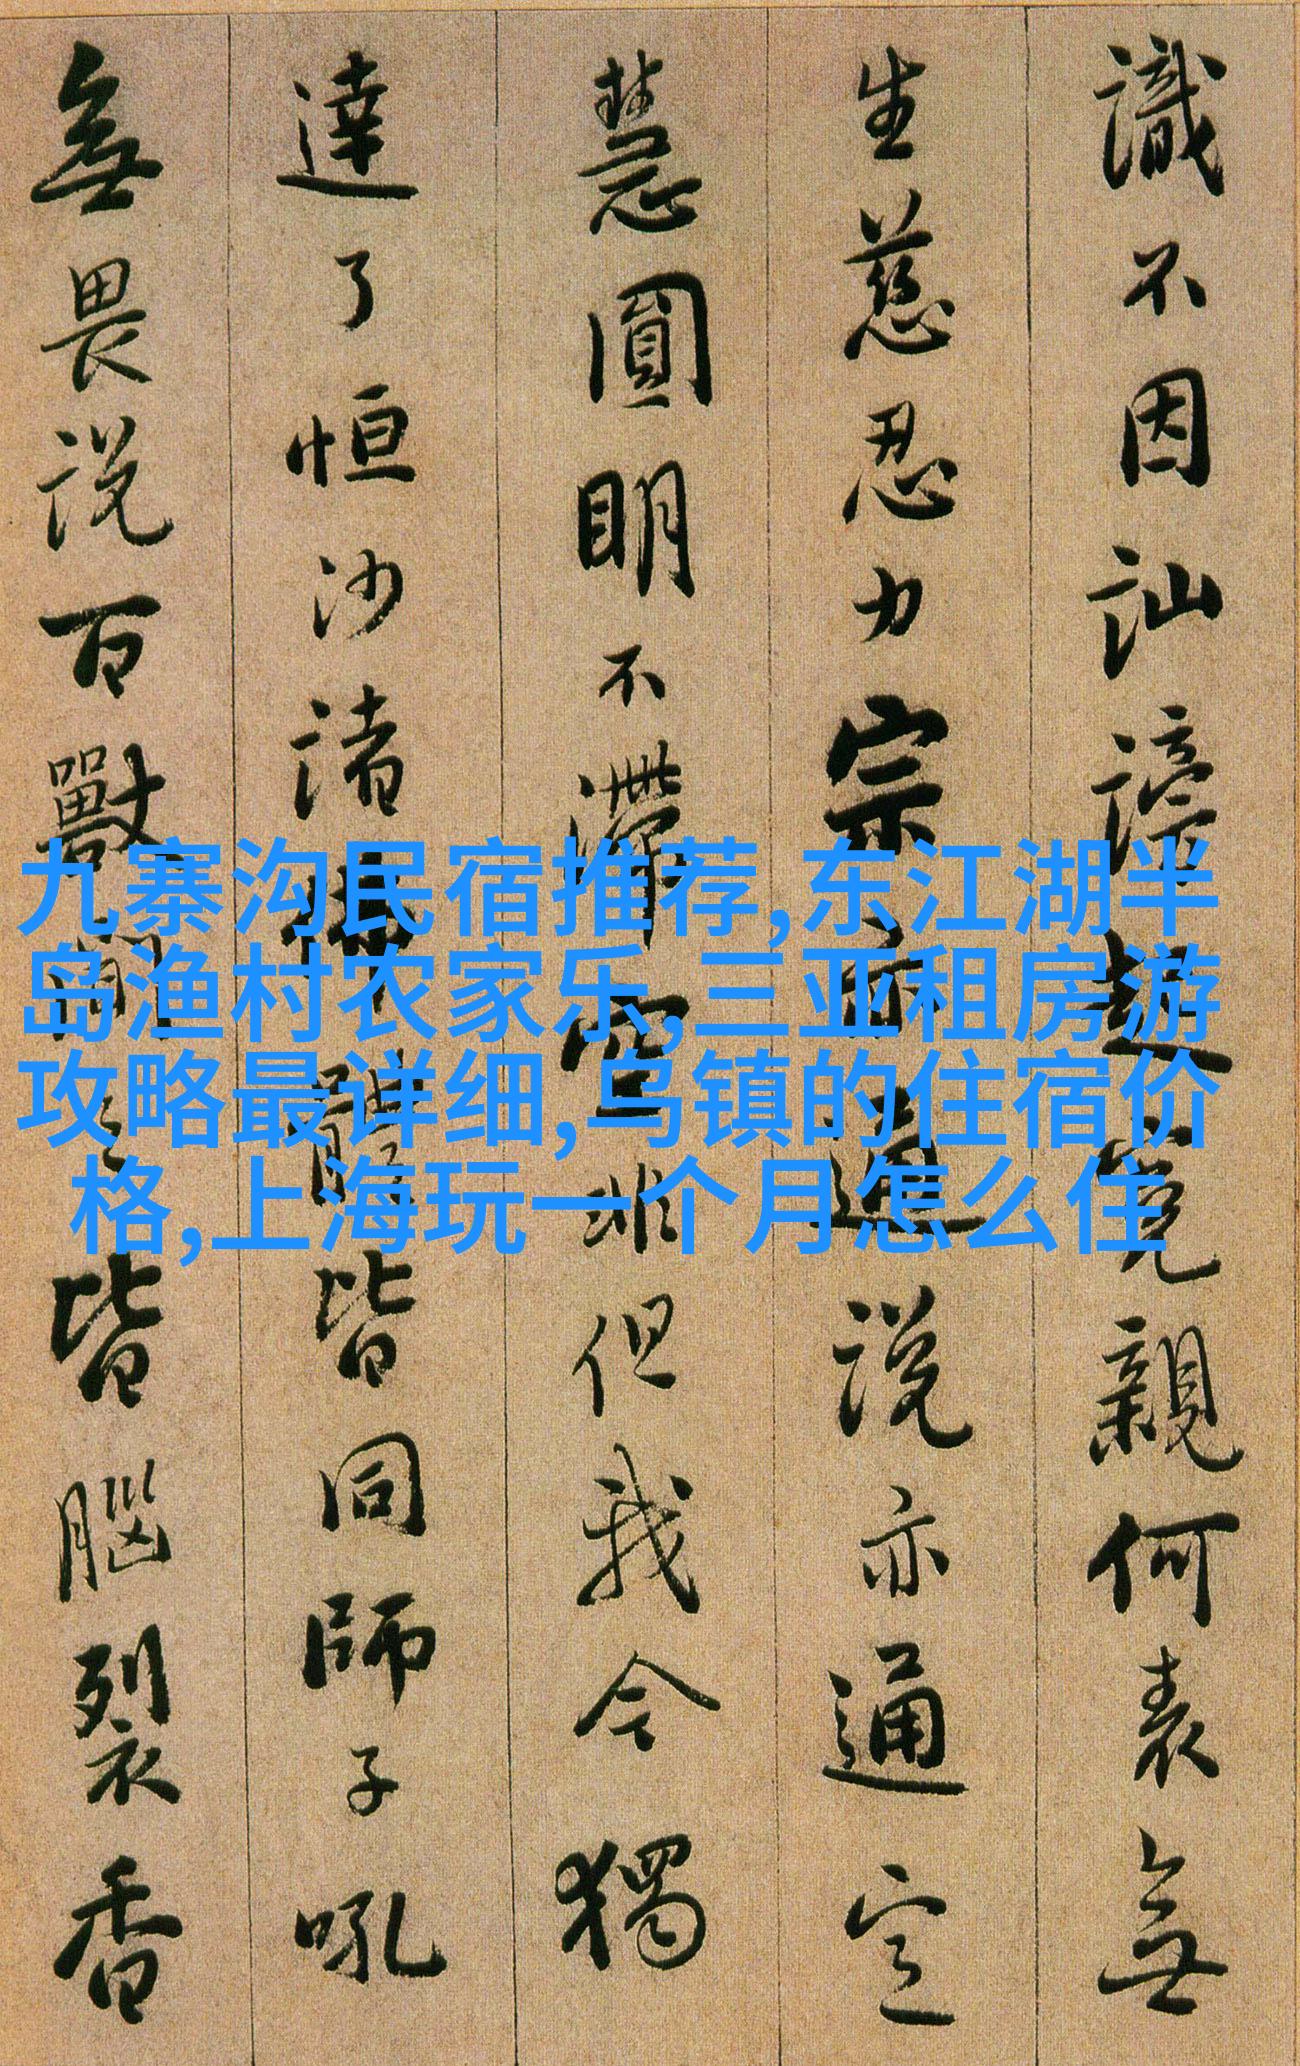 識不因訕謗起冤親何表無
生慈忍力宗亦通說亦通定
慧圓明不滯空非但我今獨
達了恒沙諸佛體皆同師子吼
無畏說百獸聞之皆腦裂香
九寨沟民宿推荐,东江湖半
岛渔村农家乐,三亚租房游
攻略最详细,乌镇的住宿价
格,上海玩一个月怎么住